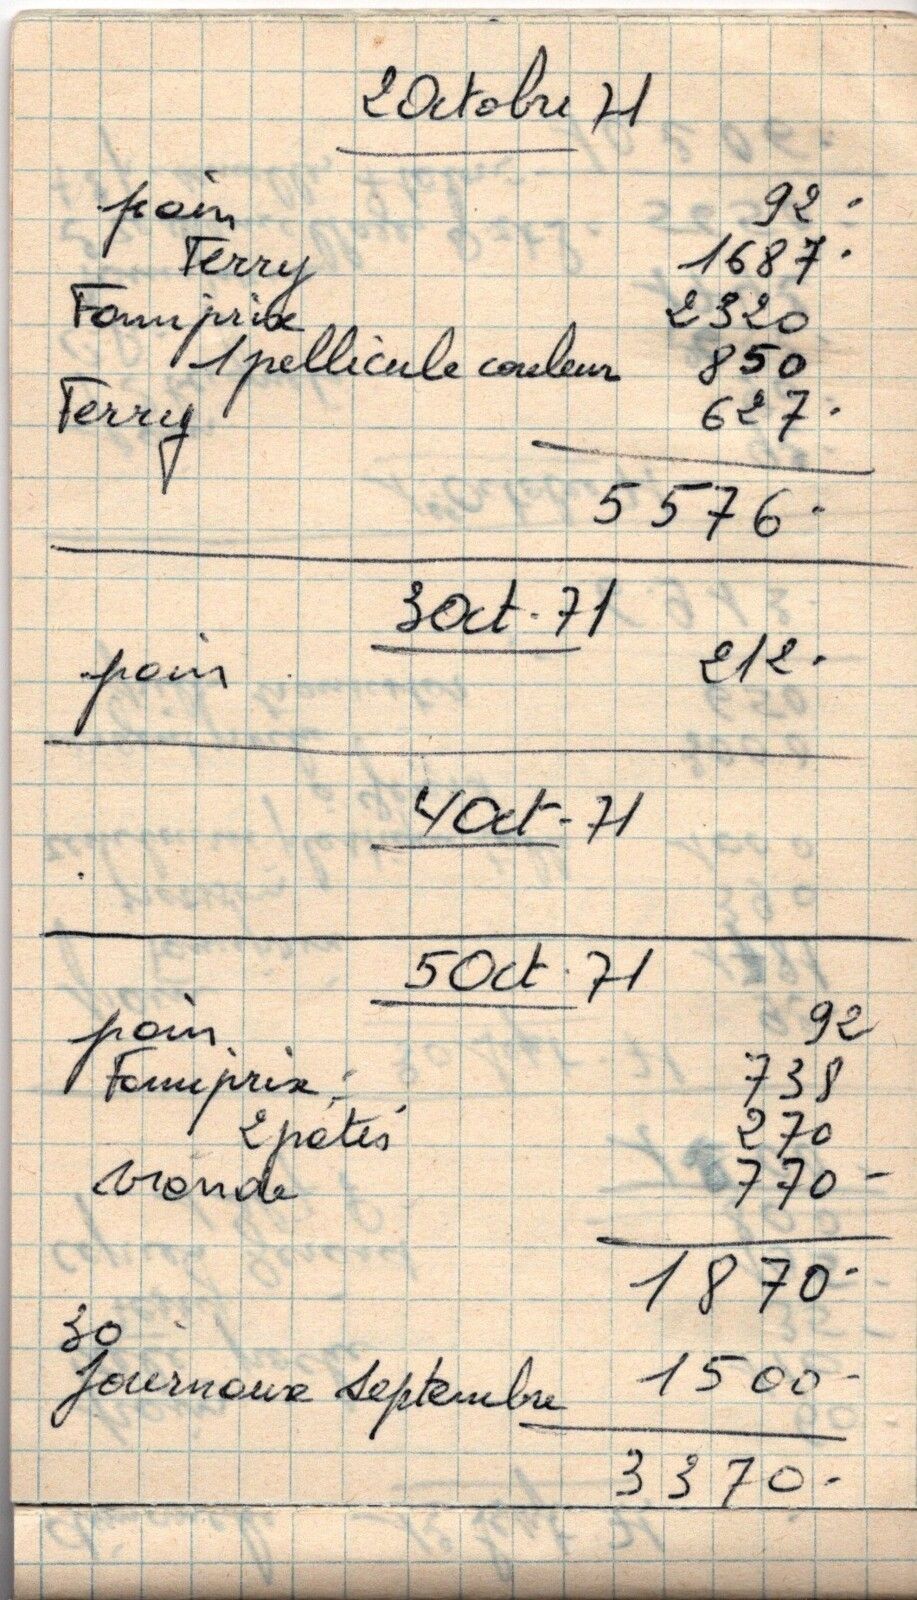 2 Octobre 71
pain 92.
Ferry 1687.
Famiprix 2320
1 pellicule couleur 850
Ferry 627.
5576.
3 Oct. 71
pain 212.
4 Oct. 71
5 Oct. 71
pain 92
Famiprix : 738
2 patés 270
viande 770-
1870-
30
journaux septembre 1500-
3370-